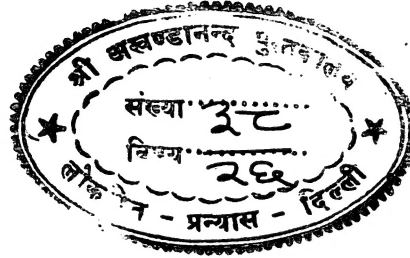 श्री अखण्डानन्द पुस्तकालय
संख्या ३८
विषय २६
लोक - प्रन्यास - दिल्ली